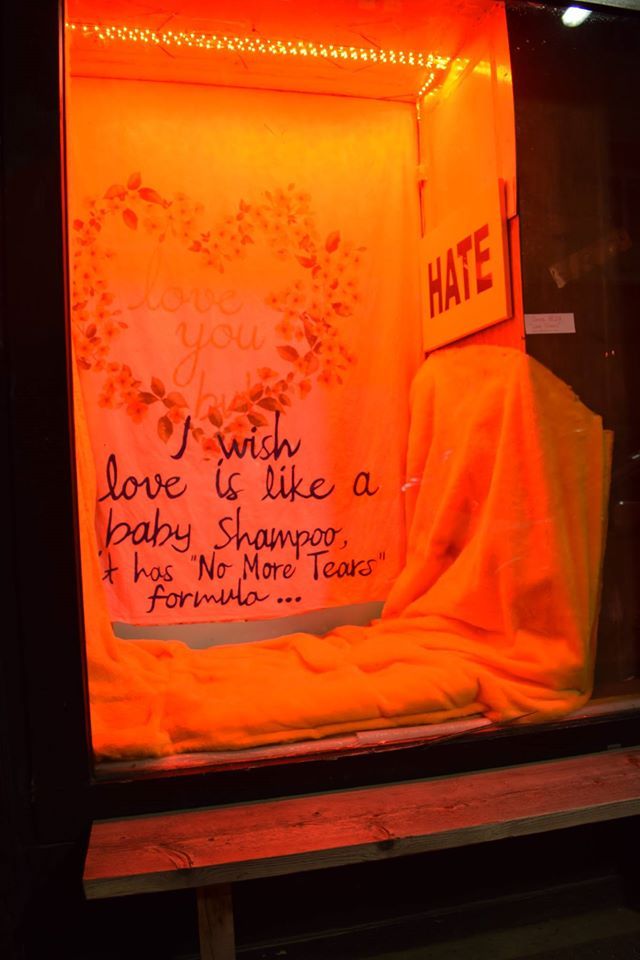 love
you
HATE
I wish
love is like a
baby Shampoo,
it has "No More Tears"
formula ...